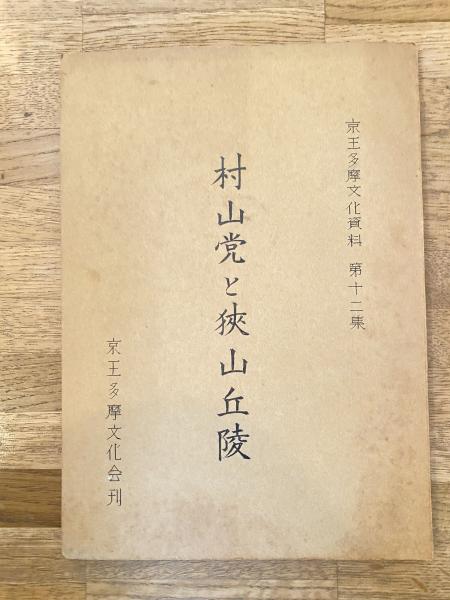 京王多摩文化資料 第十二集
村山党と狹山丘陵
京王多摩文化会刊